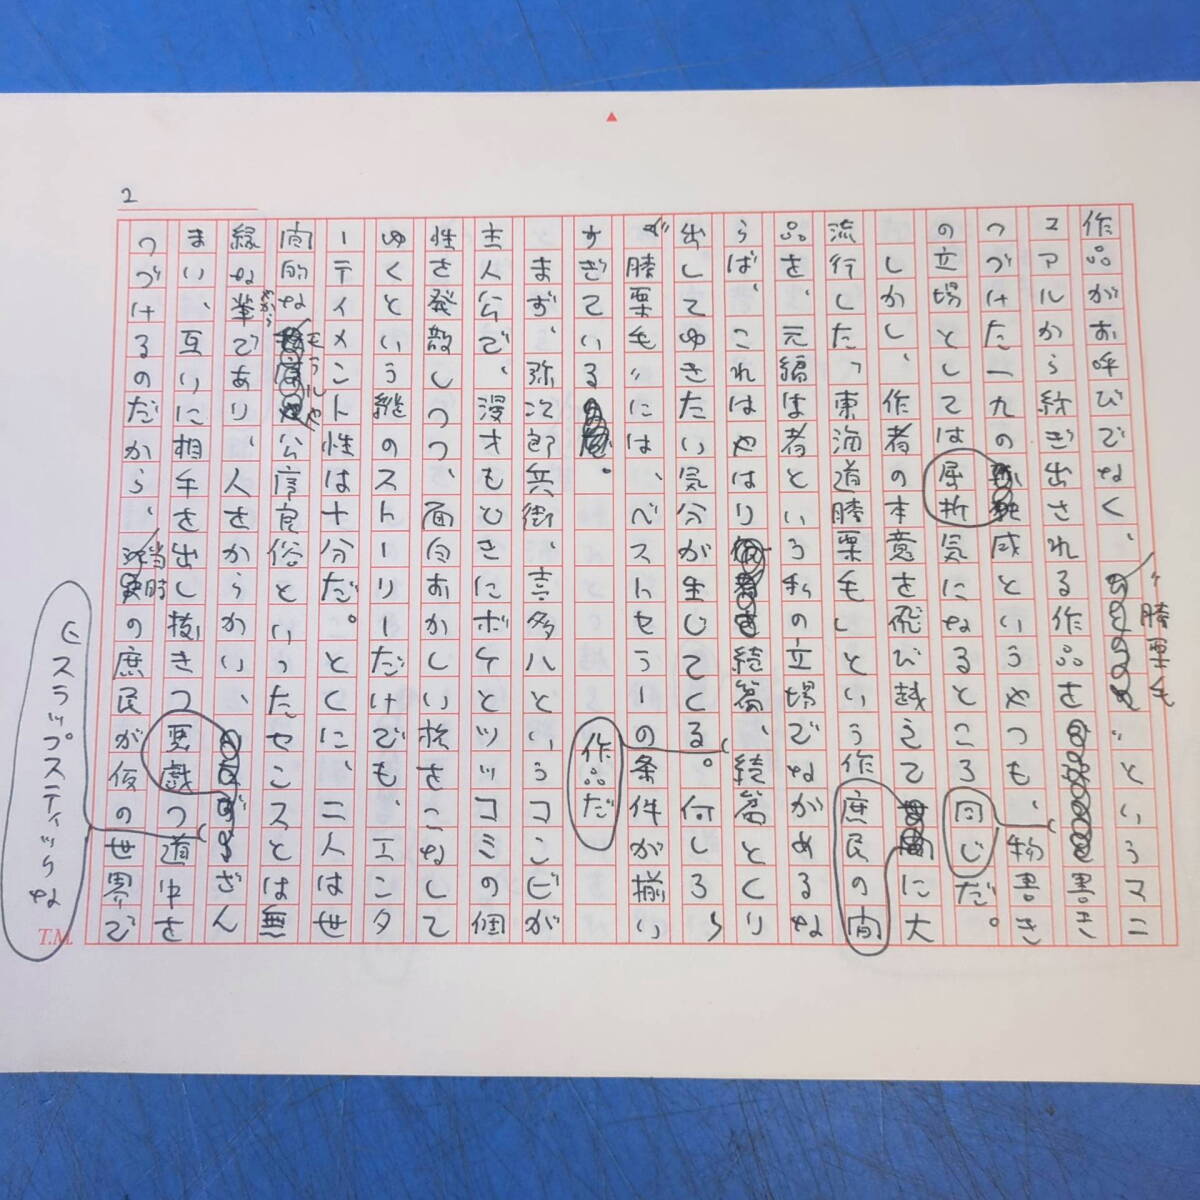 2
作品がお呼びでなく、〃膝栗毛〃というマニ
ュアルから紡ぎ出される作品を書き
つづけた一九の屈折感というやつも、物書き
の立場としては同じ気になるところだ。
しかし、作者の本意を飛び越えて庶民の間に大
流行した「東海道膝栗毛」という作
品を、元編は者という私の立場でながめるな
らば、これはやはり続篇、続篇とくり
出してゆきたい気分が生じてくる。何しろ、
〃膝栗毛〃には、ベストセラーの条件が揃い
すぎている作品だ。
まず、弥次郎兵衛、喜多八というコンビが
主人公で、漫才もどきにボケとツッコミの個
性を発散しつつ、面白おかしい旅をこなして
ゆくという縦のストーリーだけでも、エンタ
ーテイメント性は十分だ。とくに、二人は世
間的なモラルや公序良俗といったセンスとは無
縁な輩であり、人をからかい、悪戯ざん
やから
まい、互いに相手を出し抜きつつ道中を
つづけるのだから、当時の庶民が仮の世界で
スラップスティックな
T.M.